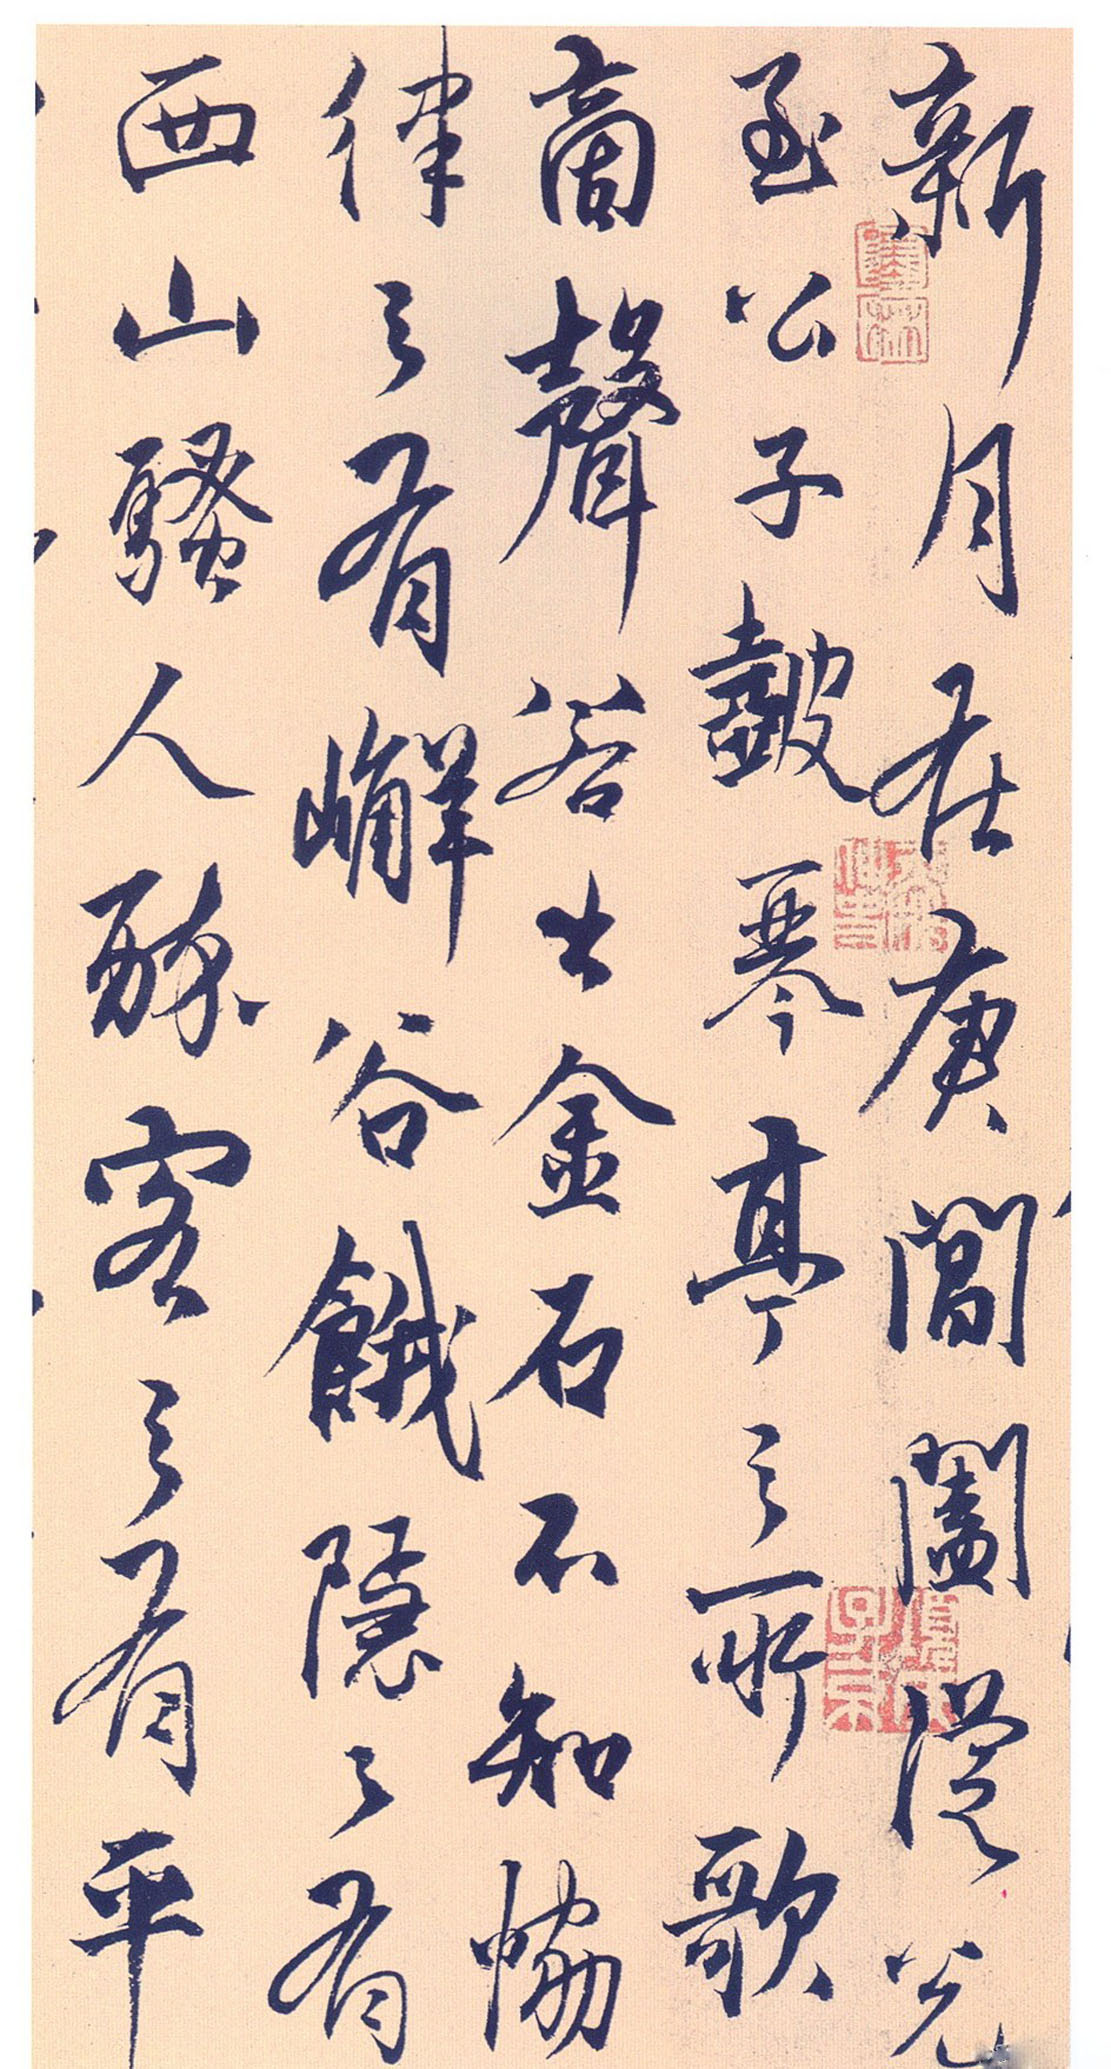 新月在庚閶闔從光
至公子皷琴亭之所歌
商聲若出金石不知協
律之有嶰谷餓隱之有
西山騷人醉客之有平